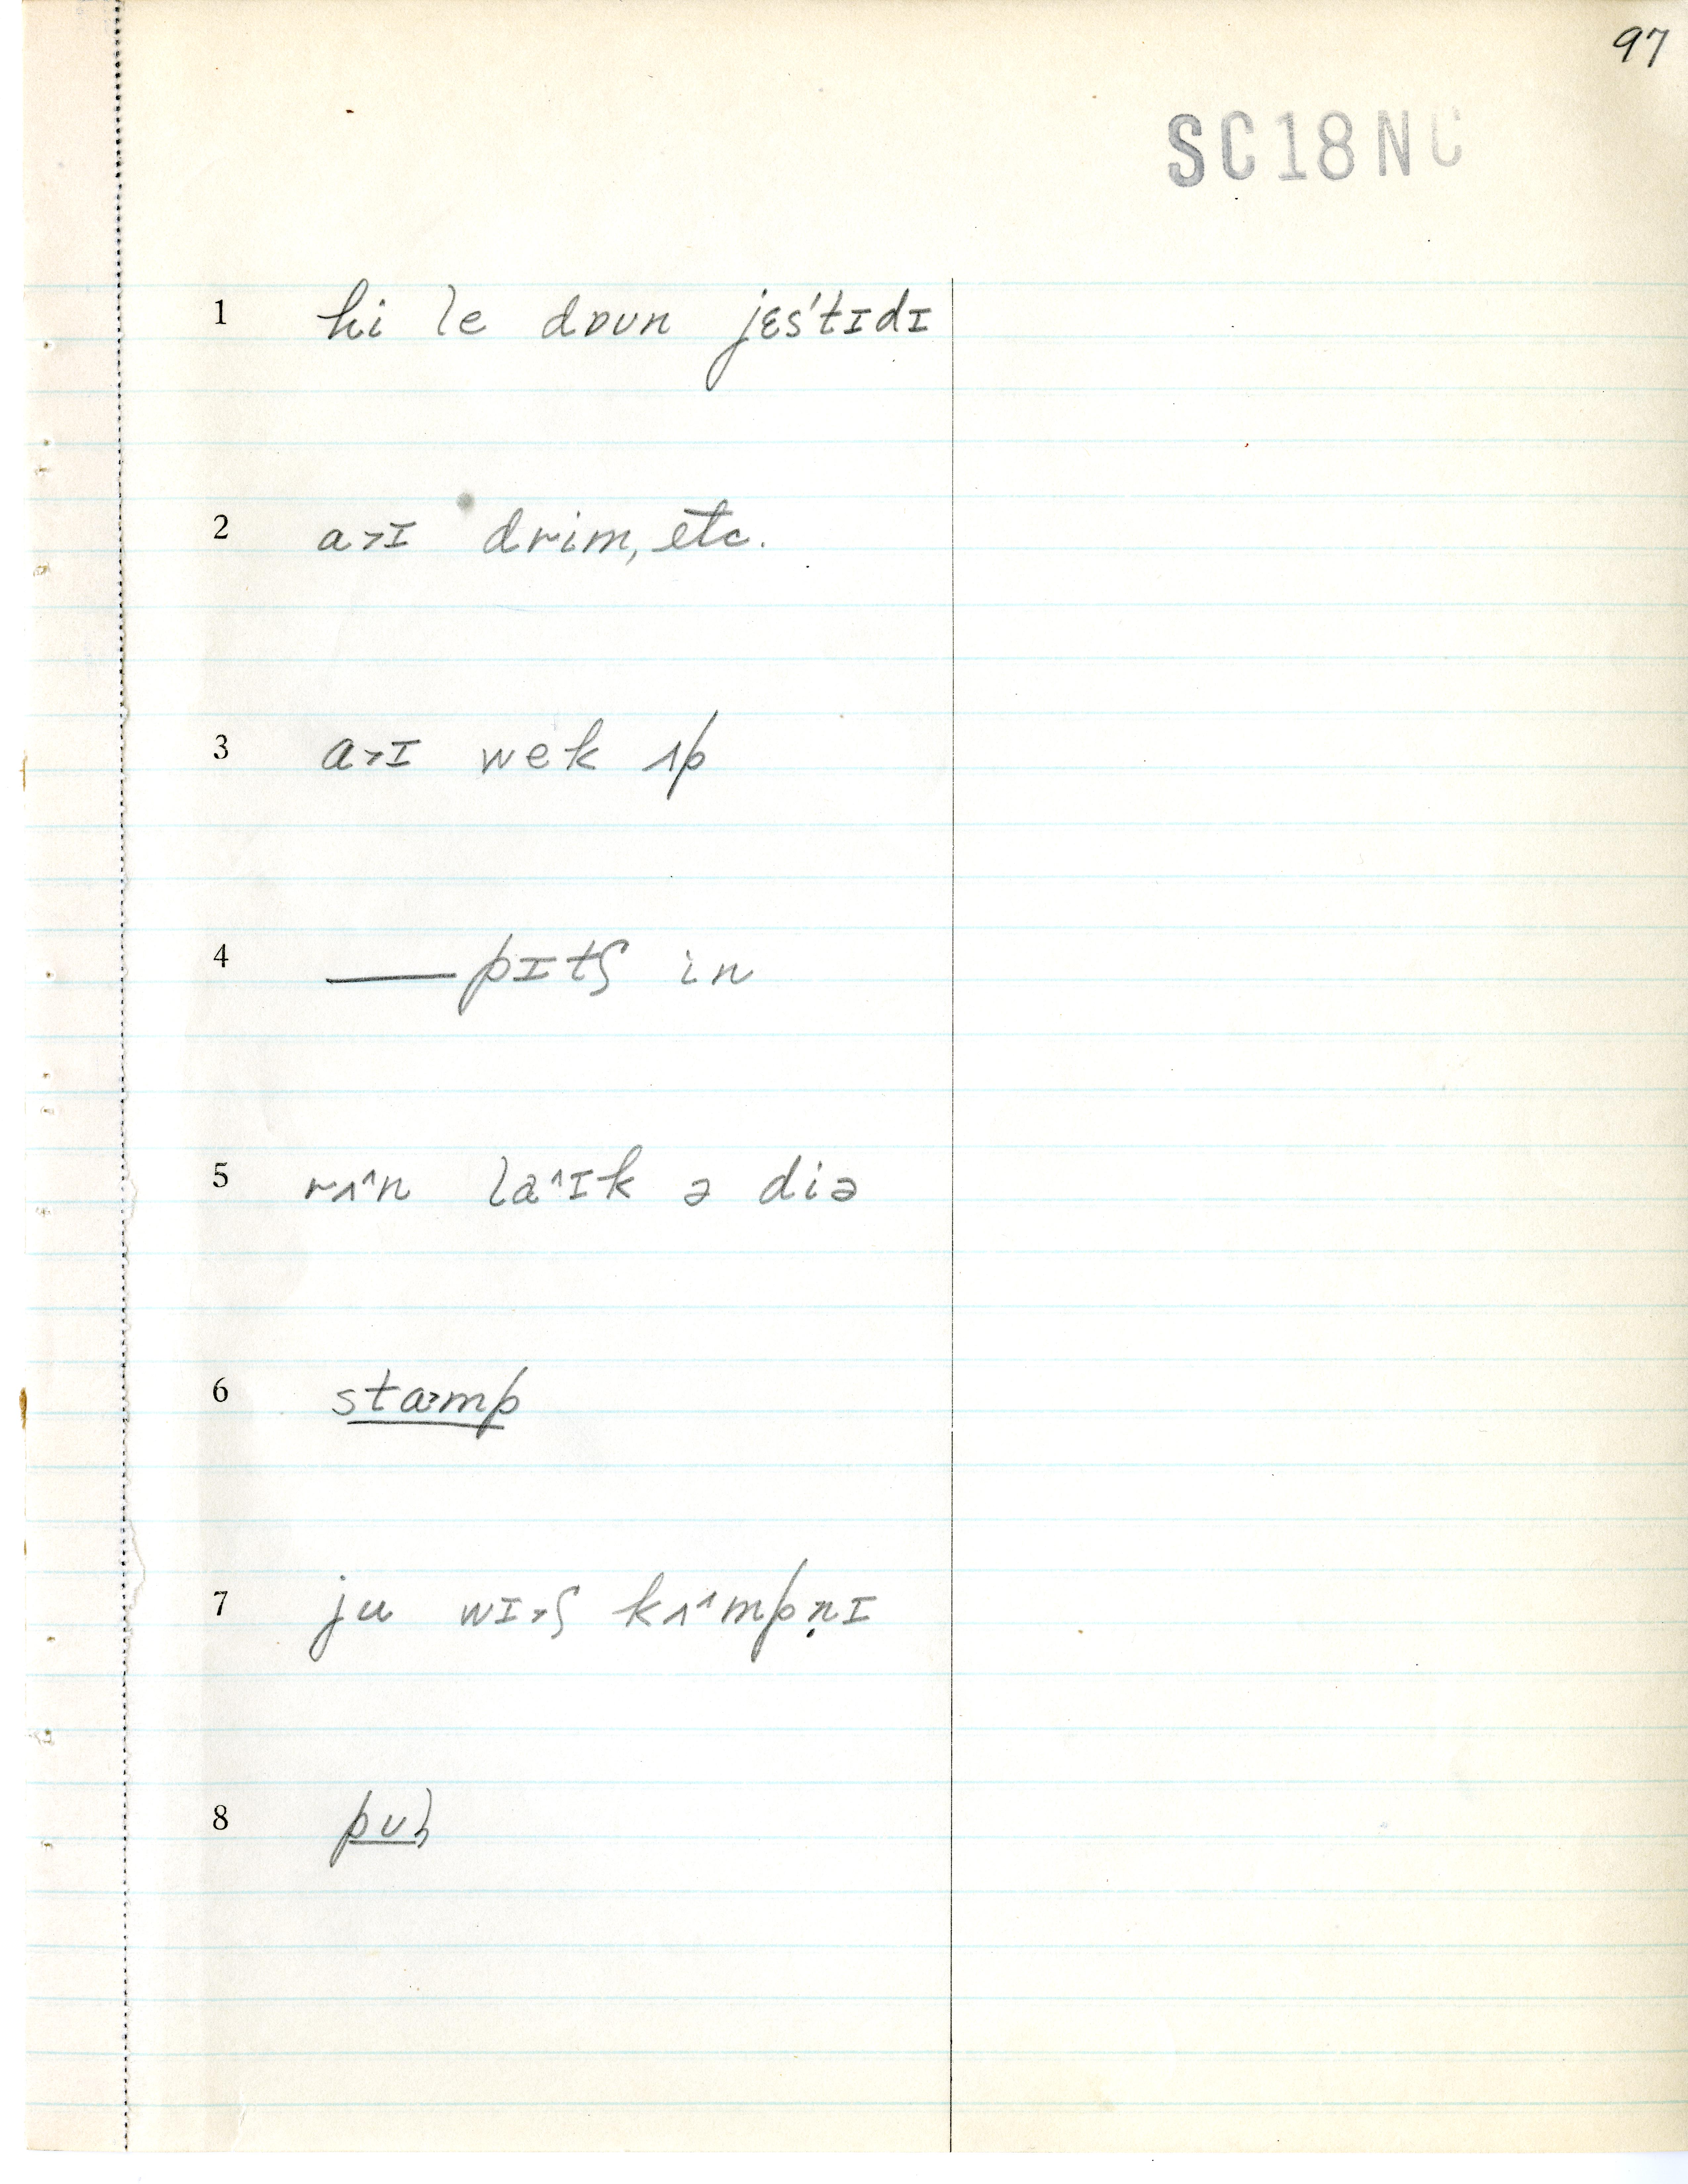 97
SC18NC
1 hi le dɒʊn jɛs'tɪdɪ
2 a˃ɪ drim, etc.
3 a˃ɪ wek ʌp
4 —— pɪtʃ in
5 rʌ˄n la˄ɪk ə diə
6 sta˃mp
7 ju wɪ˃ʃ kʌ˄mpn̩ɪ
8